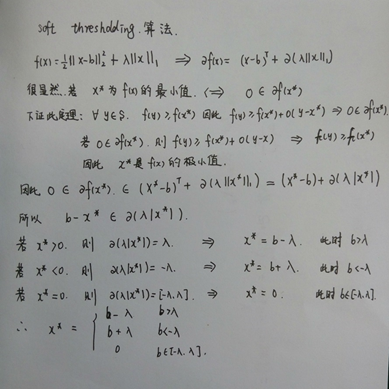 soft thresholding 算法.
f(x)=½||x-b||₂² + λ||x||₁ ⇒ ∂f(x)= (x-b)ᵀ + ∂(λ||x||₁)
很显然. 若 x* 为 f(x) 的最小值. ⟺ 0 ∈ ∂f(x*)
下证此原理: ∀ y∈S. f(y) ≥ f(x*) 因此 f(y) ≥ f(x*)+0(y-x*) ⇒ 0 ∈ ∂f(x*).
若 0 ∈ ∂f(x*). 则 f(y) ≥ f(x*)+0(y-x) ⇒ f(y) ≥ f(x*)
因此 x* 是 f(x) 的极小值.
因此 0 ∈ ∂f(x*). ∈ (x*-b)ᵀ + ∂(λ||x*||₁) = (x*-b) + ∂(λ|x*|)
所以 b-x* ∈ ∂(λ|x*|).
若 x*>0. 则 ∂(λ|x*|)=λ. ⇒ x*=b-λ. 此时 b>λ
若 x*<0. 则 ∂(λ|x*|)=-λ. ⇒ x*=b+λ. 此时 b<-λ
若 x*=0. 则 ∂(λ|x*|)=[-λ,λ]. ⇒ x*=0. 此时 b∈[-λ,λ].
∴ x* = { b-λ b>λ
b+λ b<-λ
0 b∈[-λ,λ].